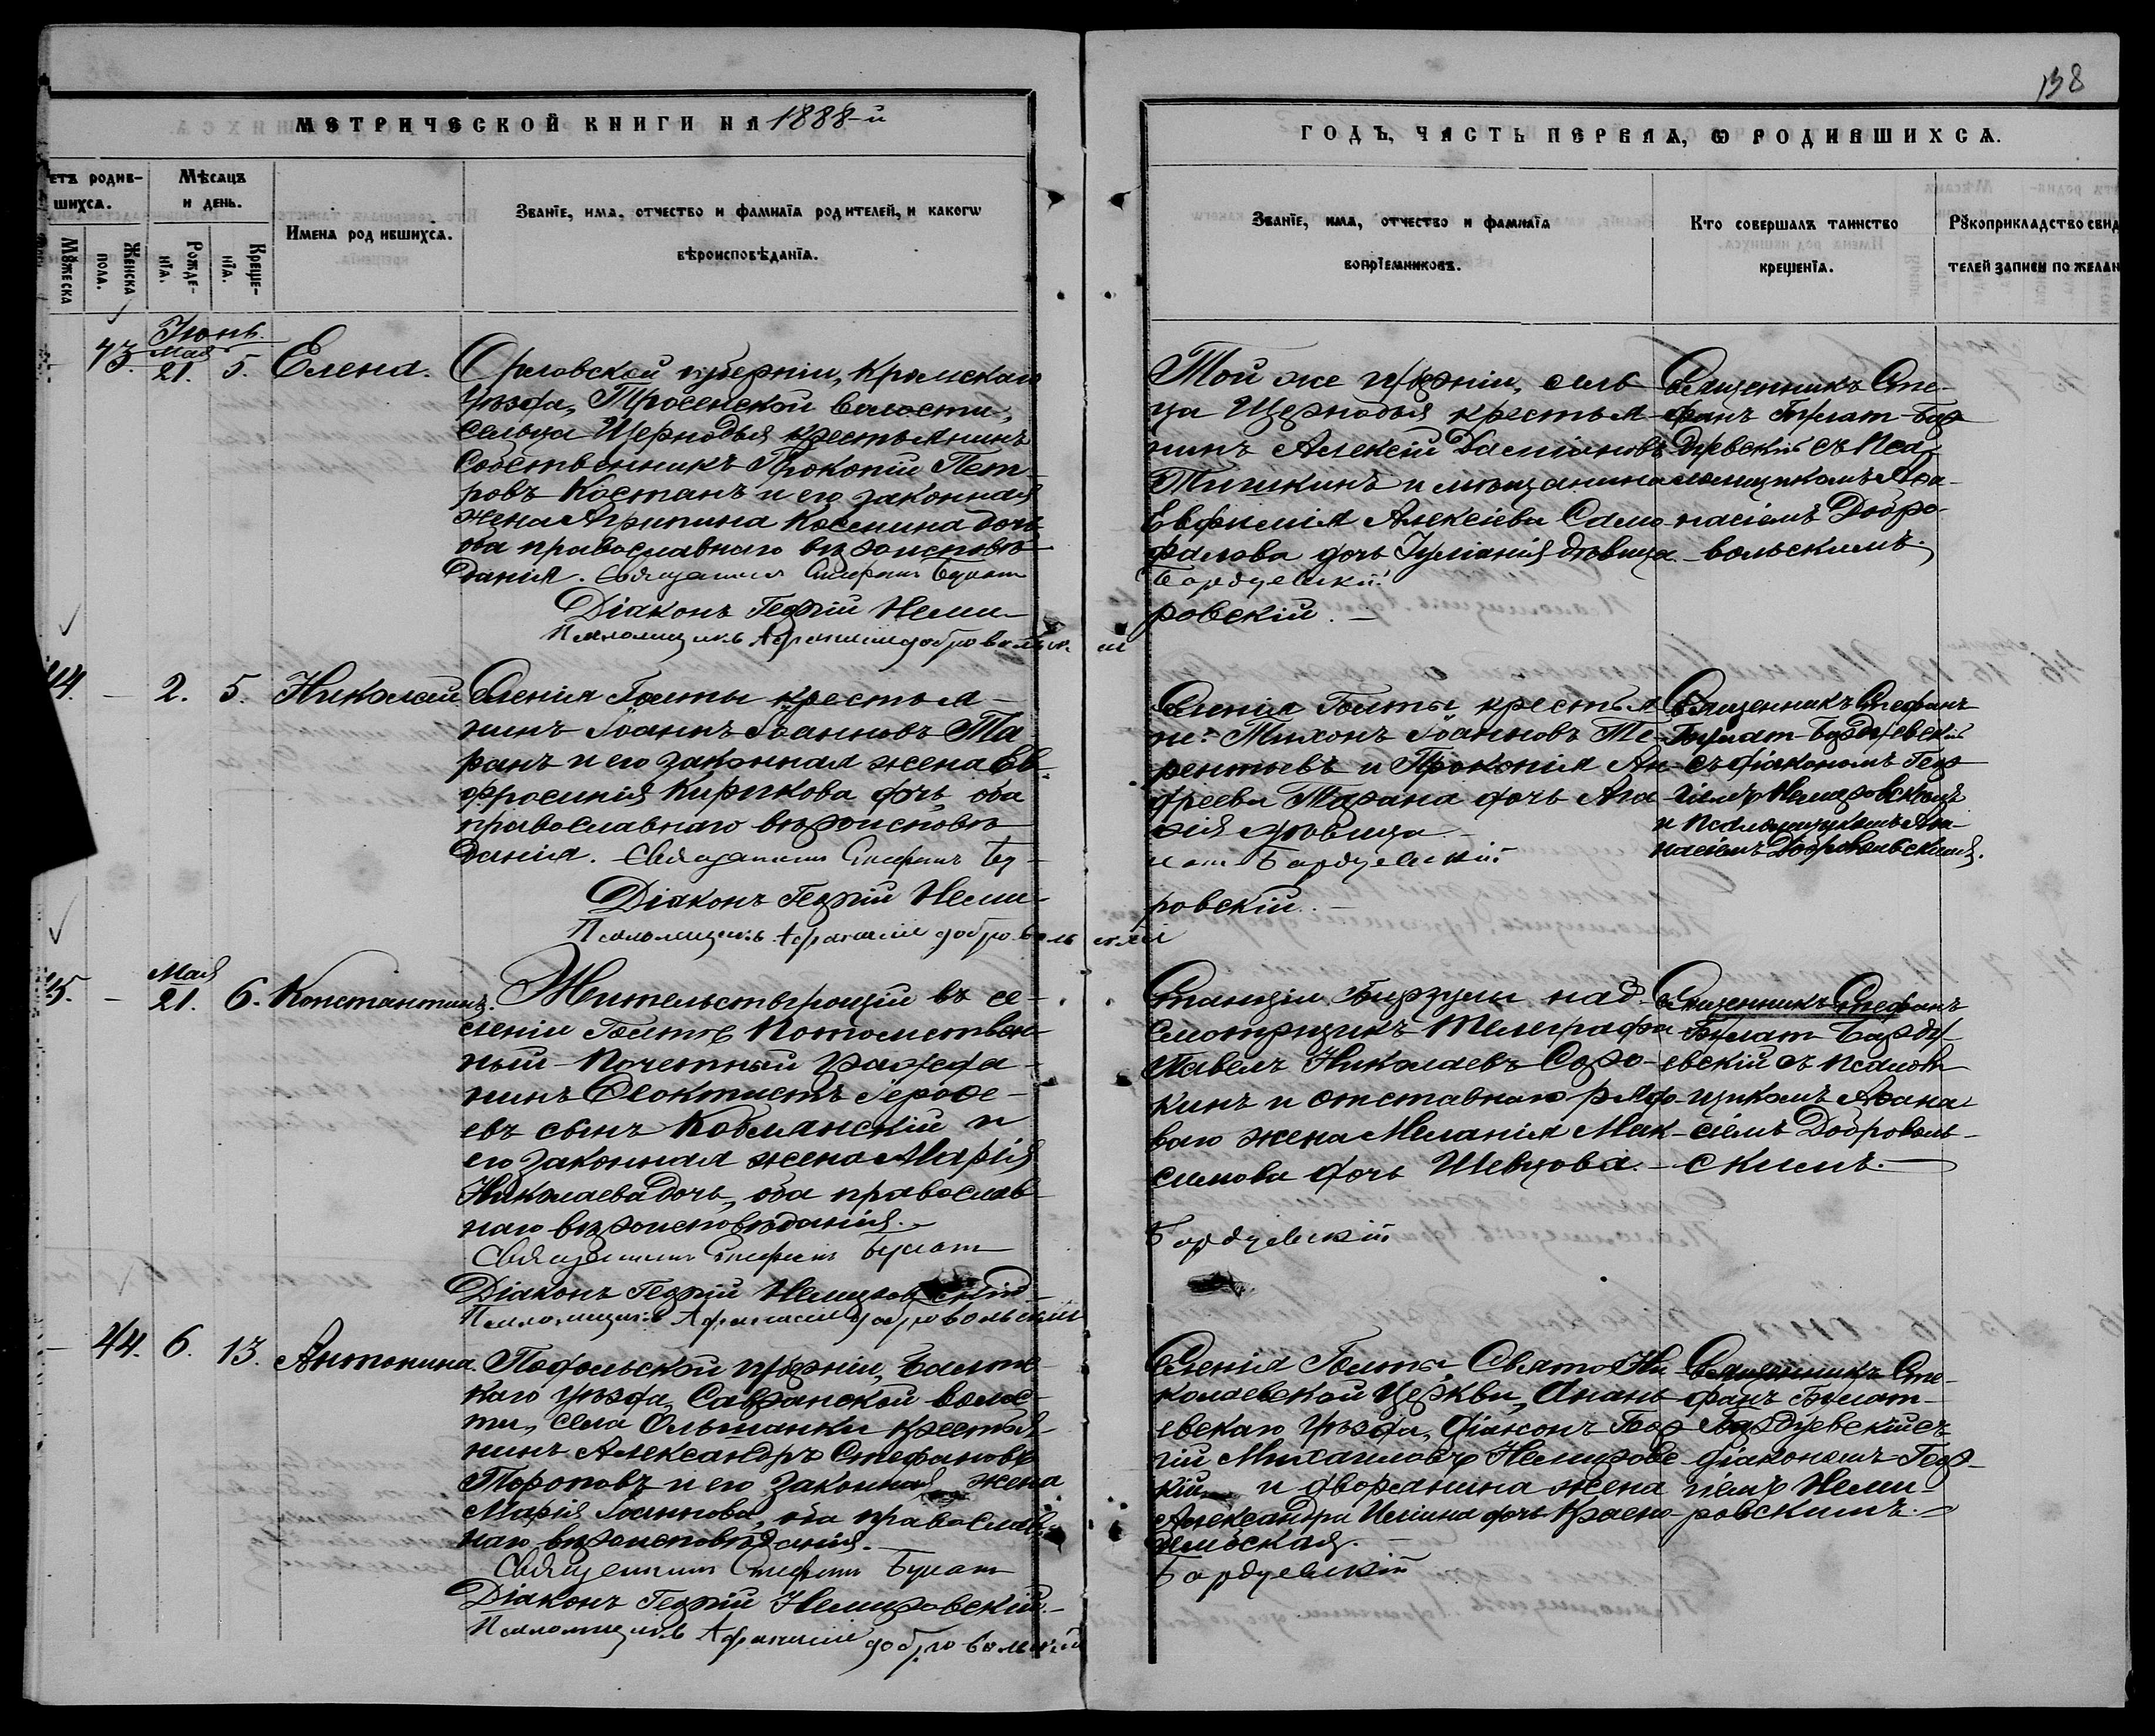 138
МЕТРИЧЕСКОЙ КНИГИ НА 1888-й
ГОДЪ, ЧАСТЬ ПЕРВАЯ, Ѡ РОДИВШИХСѦ.
етъ родив-
шихсѧ.
Мѣсѧцъ
и день.
Имена родившихсѧ.
Званїе, имѧ, отчество и фамилїѧ родителей, и какогѡ
вѣроисповѣданїѧ.
Мꙋжеска
Женска
пола.
Рожде-
нїѧ.
Креще-
нїѧ.
Званїе, имѧ, отчество и фамилїѧ
воспрїемниковъ.
Кто совершалъ таинство
крещенїѧ.
Рꙋкоприкладство свид
телей записи по желан
Іюнь.
43.
Мая
21.
5.
Елена.
Орловской губерніи,
уѣзда,
волости,
сельца крестьянинъ
собственникъ Прокопій Пет
ровъ Костанъ и его законная
жена Агрипина Космина дочь
оба православнаго вѣроисповѣ
данія. Священникъ Стефанъ Булат
Діаконъ Георгій Неми-
Псаломщикъ Афанасій Добровольскій
Той же губерніи, сель
ца крестья
нинъ Алексій Даміановъ
Тишкинъ и мѣщанина
Евфимія Алексіева Само
фалова дочь Іуліанія дѣвица.
Бордуевскій
ровскій. —
Священникъ Сте-
фанъ Булат-Бор
дуевскій съ Пса
ломщикомъ Афа-
насіемъ Добро-
вольскимъ.
44.
—
2.
5.
Николай
Селенія Гольмы крестья-
нинъ Іоаннъ Іоанновъ Та
ранъ и его законная жена Ев-
фросинія Кирикова дочь, оба
православнаго вѣроисповѣ
данія. Священникъ Стефанъ Бу-
Діаконъ Георгій Неми-
Псаломщикъ Афанасій Добровольскій
Селенія Гольмы крестья
не: Тихонъ Іоанновъ Те-
рентьевъ и Прокопія Ан-
дреева Тарана дочь Ага
фія дѣвица.
лат Бордуевскій
ровскій. —
Священникъ Стефанъ
Булат-Бордуевскій
съ діакономъ Геор
гіемъ Немировскимъ
и Псаломщикомъ Афа-
насіемъ Добровольскимъ.
45.
—
Мая
21.
6.
Константинъ.
Жительствующій въ се-
леніи Гольмѣ Потомствен-
ный Почетный гражда-
нинъ Ѳеоктистъ Іерофе-
евъ сынъ Коблянскій и
его законная жена Марія
Николаева дочь, оба православ-
наго вѣроисповѣданія.
Священникъ Стефанъ Булат
Діаконъ Георгій Немировскій
Псаломщикъ Афанасій Добровольскій
Станціи Бирзулы над-
смотрщикъ телеграфа
Павелъ Николаевъ Соро-
кинъ и отставнаго рядо-
ваго жена Меланія Мак-
симова дочь Шевцова.
Бордуевскій
Священникъ Стефанъ
Булат Борду-
евскій съ псалом
щикомъ Афана
сіемъ Доброволь-
скимъ.
—
44.
6.
13.
Антонина.
Подольской губерніи, Балтс
каго уѣзда, Савранской волос-
ти, села Ольшанки крестья-
нинъ Александръ Стефановъ
Тороповъ и его законная жена
Марія Іоаннова, оба православ-
наго вѣроисповѣданія.
Священникъ Стефанъ Булат
Діаконъ Георгій Немировскій.
Псаломщикъ Афанасій Добровольскій
Селенія Гольмы, Свято-Ни
колаевской Церкви, Анань
евскаго уѣзда, діаконъ Геор
гій Михаиловъ Немировс
кій и дворянина жена
Александра Иліина дочь
Бордуевскій
Священникъ Сте-
фанъ Булат-
Бордуевскій съ
діакономъ Геор-
гіемъ Неми-
ровскимъ.